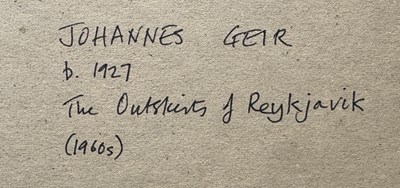 JOHANNES GEIR
b. 1927
The Outskirts of Reykjavik
(1960s)